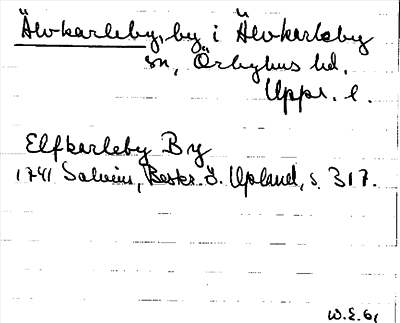 Älvkarleby, by i Älvkarleby
sn, Örbyhus hd,
Upps. l.
Elfkarleby By
1741 Salvius, Beskr. ö. Upland, s. 317.
W.E. 61